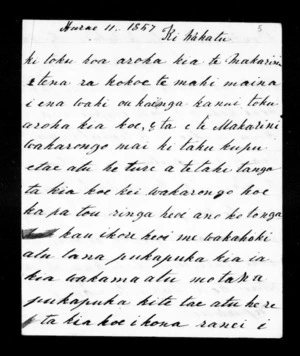 Hurae 11. 1857
Ki Wakatu
ki toku hoa aroha kia te Makarini
tena ra kokoe te mahi maina
i ena wahi ou kainga ka nui toku
aroha kia koe, e ta e te Makarini
wakarongo mai ki taku kupu
etae atu he ture a te taku tanga
ta kia koe kei wakarongo koe
ka pa tou ringa
kau ikore koe i me wakahoki
atu tana pukapuka kia ia
kia wakama atu mo tana
pukapuka kite tae atu kere
ta kia koe i kona ranei i